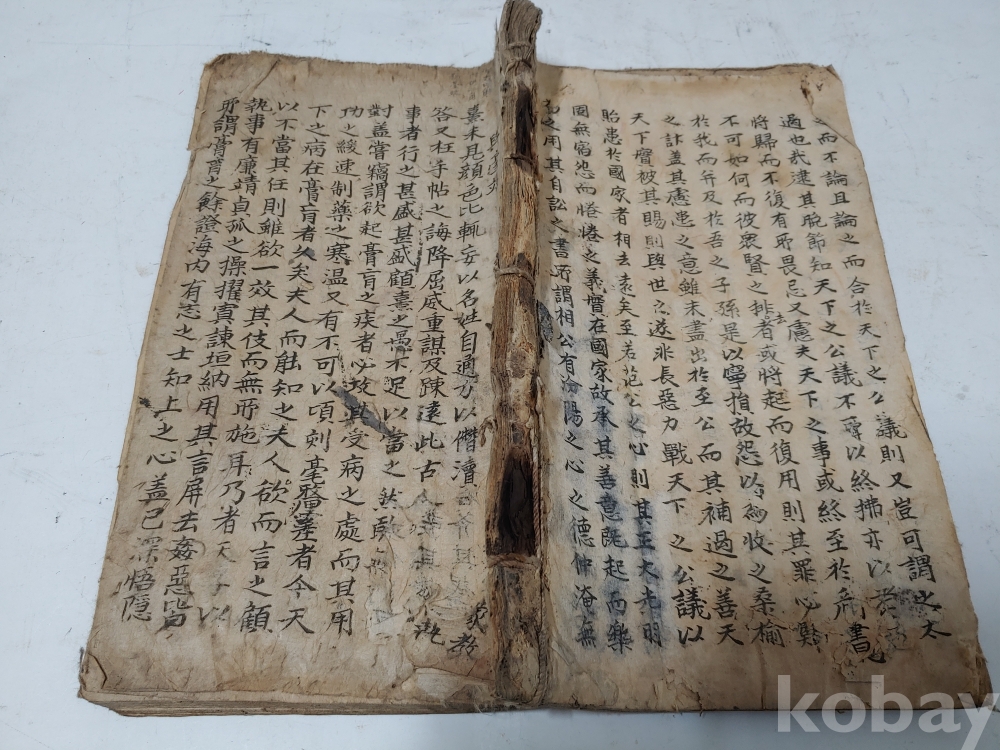 之而不論且論之而合於天下之公議則又豈可謂之太
過也哉逮其晩節知天下之公議不可以終拂亦以老
將歸而不復有所畏忌又慮夫天下之事或終至於危
不可如何而彼衆賢之排去者或將起而復用則其罪必
於我而并及於吾之子孫是以寧損故怨以爲收之桑榆
之計蓋其慮患之意雖未盡出於至公而其補過之善天
天下實被其賜則與世之遂非長惡力戰天下之公議以
貽患於國家者相去遠矣至若范公之心則其正大光明
固無宿怨而惓惓之義實在國家故承其善意旣起而樂
之用其自訟之書所謂相公有汾陽之心之德仲淹無
熹未見顔色比輒妄以名姓自通方以僭瀆
答又枉手帖之誨降屈威重謀及踈遠此古
事者行之甚盛甚盛顧熹之愚不足以當之然
對盖嘗竊謂欲起膏肓之疾者必攻其受病之處而其用
功之緩速制藥之寒溫又有不可以頃刻毫釐差者今天
下之病在膏肓者久矣夫人而能知之夫人欲而言之顧
以不當其任則雖欲一效其伎而無所施耳乃者天子以
執事有廉靖貞孤之操擢寘諫垣納用其言屏去姦惡
所謂膏肓之餘證海内有志之士知上之心盖已深悟隱